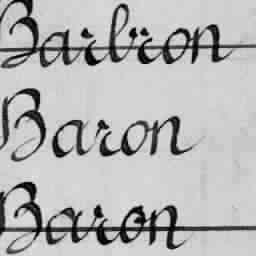 Barbron
Baron
Baron